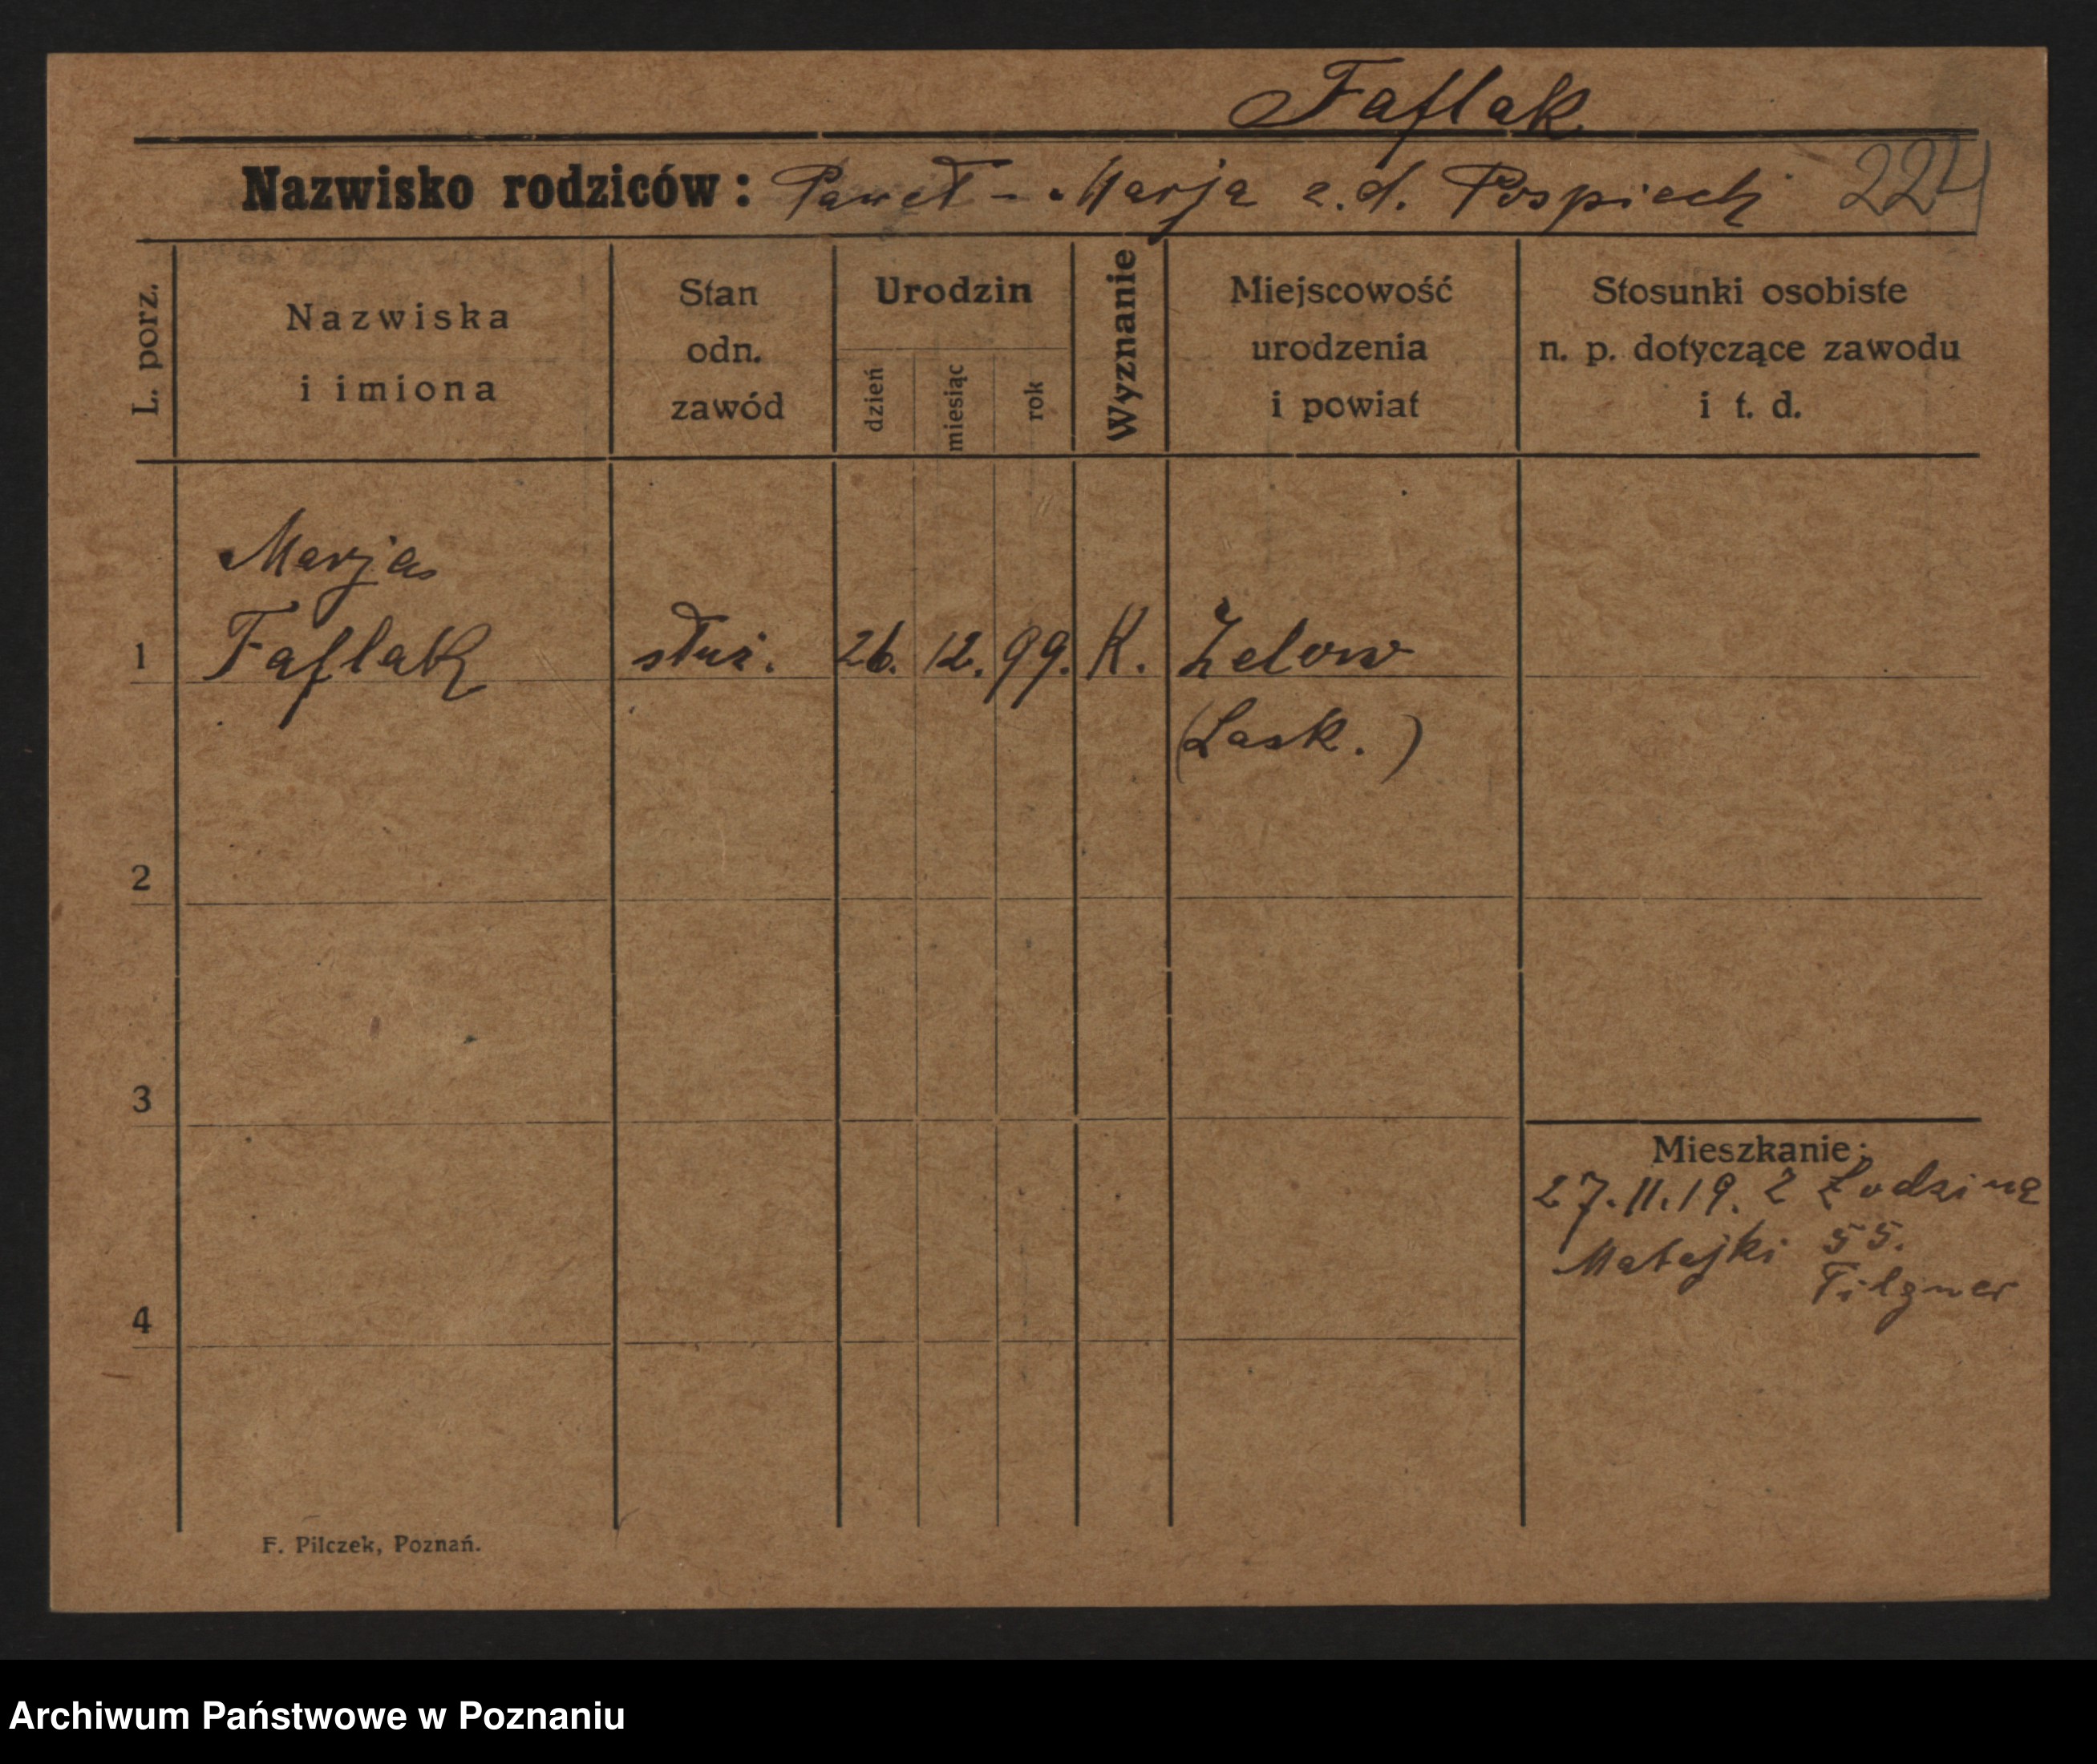 Faflak
Nazwisko rodziców: Paweł - Marja z.d. Pospiech 224
L. porz.
Nazwiska
i imiona
Stan
odn.
zawód
Urodzin
dzień
miesiąc
rok
Wyznanie
Miejscowość
urodzenia
i powiat
Stosunki osobiste
n. p. dotyczące zawodu
i t. d.
Marja
1 Faflak służ. 26. 12. 99. K. Zelow
(Lask.)
2
3
Mieszkanie:
27.11.19. z
Matejki 55.
Filgner
4
F. Pilczek, Poznań.
Archiwum Państwowe w Poznaniu